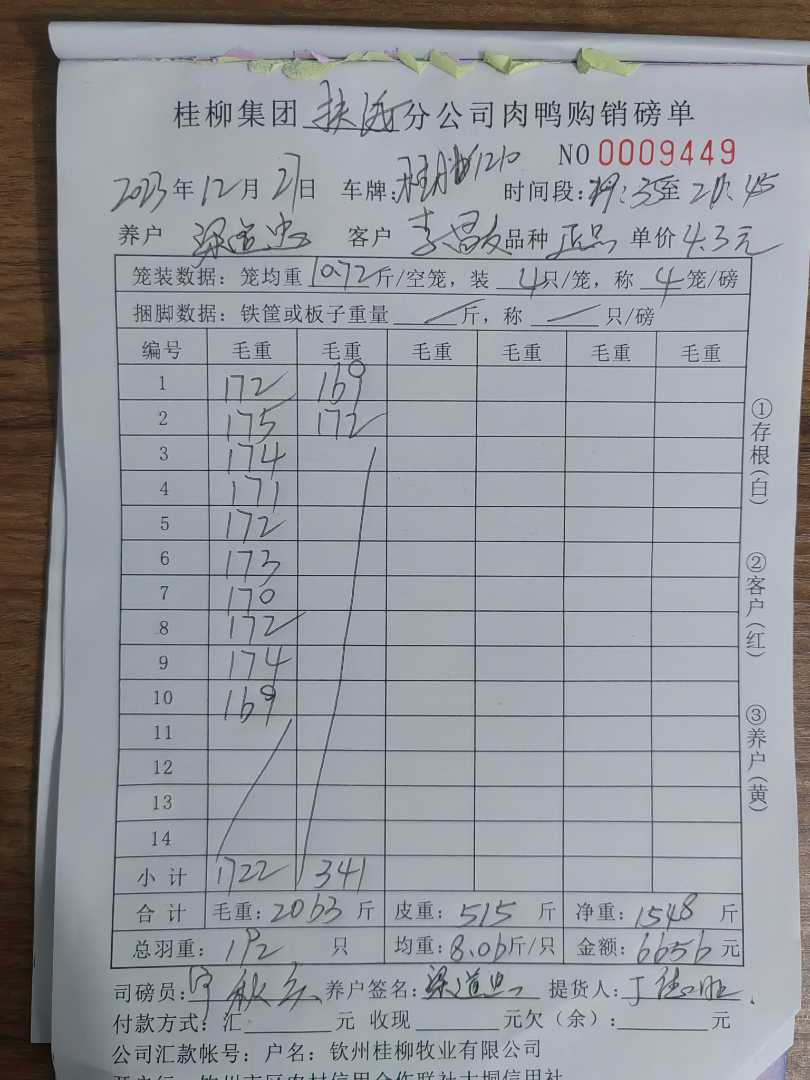 桂柳集团 扶 分公司肉鸭购销磅单
NO 0009449
2023年12月27日 车牌: 1210 时间段: 至 21:45
养户 梁道忠 客户 李昌友 品种 正品 单价 4.3元
笼装数据: 笼均重 10.72斤/空笼, 装 4只/笼, 称 4笼/磅
捆脚数据: 铁筐或板子重量 — 斤, 称 — 只/磅
编号 毛重 毛重 毛重 毛重 毛重 毛重
1 172 169
2 175 172
3 174
4 171
5 172
6 173
7 170
8 172
9 174
10 169
11
12
13
14
小计 1722 341
合计 毛重: 2063 斤 皮重: 515 斤 净重: 1548 斤
总羽重: 192 只 均重: 8.06斤/只 金额: 6656 元
司磅员: 养户签名: 梁道忠 提货人:
付款方式: 汇 元 收现 元欠(余): 元
公司汇款帐号: 户名: 钦州桂柳牧业有限公司
开户行: 钦州市区农村信用合作联社大垌信用社
①存根(白)
②客户(红)
③养户(黄)